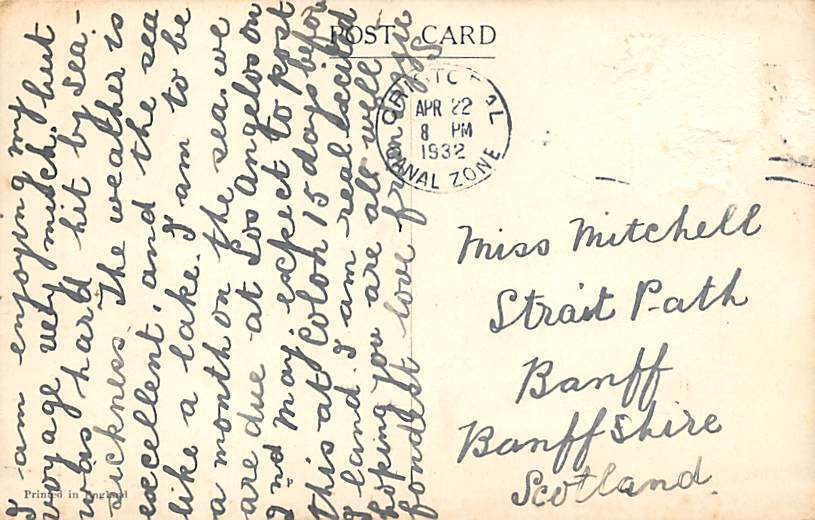 POST CARD
CRISTOBAL
APR 22
8 PM
1932
CANAL ZONE
I am enjoying my
voyage very much, but
was hard hit by sea-
sickness. The weather is
excellent, and the sea
like a lake. I am to be
a month on the sea. we
are due at Los Angelos on
2nd May, expect to post
this at Colon 15 days before
I land. I am real excited
hoping you are all well
fondest love from
Miss Mitchell
Strait Path
Banff
Banffshire
Scotland.
Printed in England